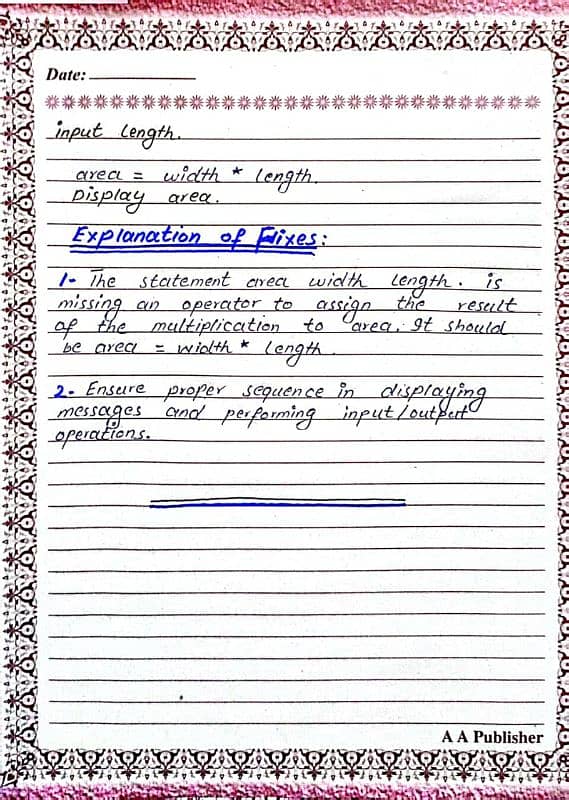 Date:
input length.
area = width * length.
Display area.
Explanation of Flixes:
1- The statement area width length. is
missing an operator to assign the result
of the multiplication to area. It should
be area = width * length
2. Ensure proper sequence in displaying
messages and performing input/output
operations.
A A Publisher